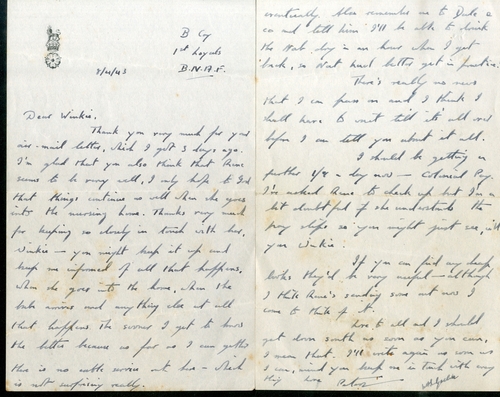 B Coy
1st Loyals
B.N.A.F.
8/4/43
Dear Winkie,
Thank you very much for your
air-mail letter, which I got 3 days ago.
I'm glad that you also think that Anne
seems to be very well, I only hope to God
that things continue so well when she goes
into the nursing home. Thanks very much
for keeping so closely in touch with her,
Winkie – you might keep it up and
keep me informed of all that happens,
when she goes into the home, when the
babe arrives and anything else at all
that happens the sooner I get to know
the better because as far as I can gather
there is no cable service out here – which
is not surprising really.
eventually. Also remember me to Duke &
co and tell him I'll be able to drink
the Wat dry in an hour when I get
back, so Wat must better get in practice.
There's really no news
that I can pass on and I think I
shall have to wait till it's all over
before I can tell you about it all.
I should be getting
further a day now – Colonial Pay.
I've asked Anne to check up but I'm a
bit doubtful if she understands the
pay slips so you might just see, will
you Winkie.
If you can find any cheap
books they'd be very useful – although
I think Anne's sending some out now I
come to think of it.
Love to all and I should
get down south as soon as you can,
I mean that. I'll write again as soon as
I can, and you keep me in touch with every
thing love Peter